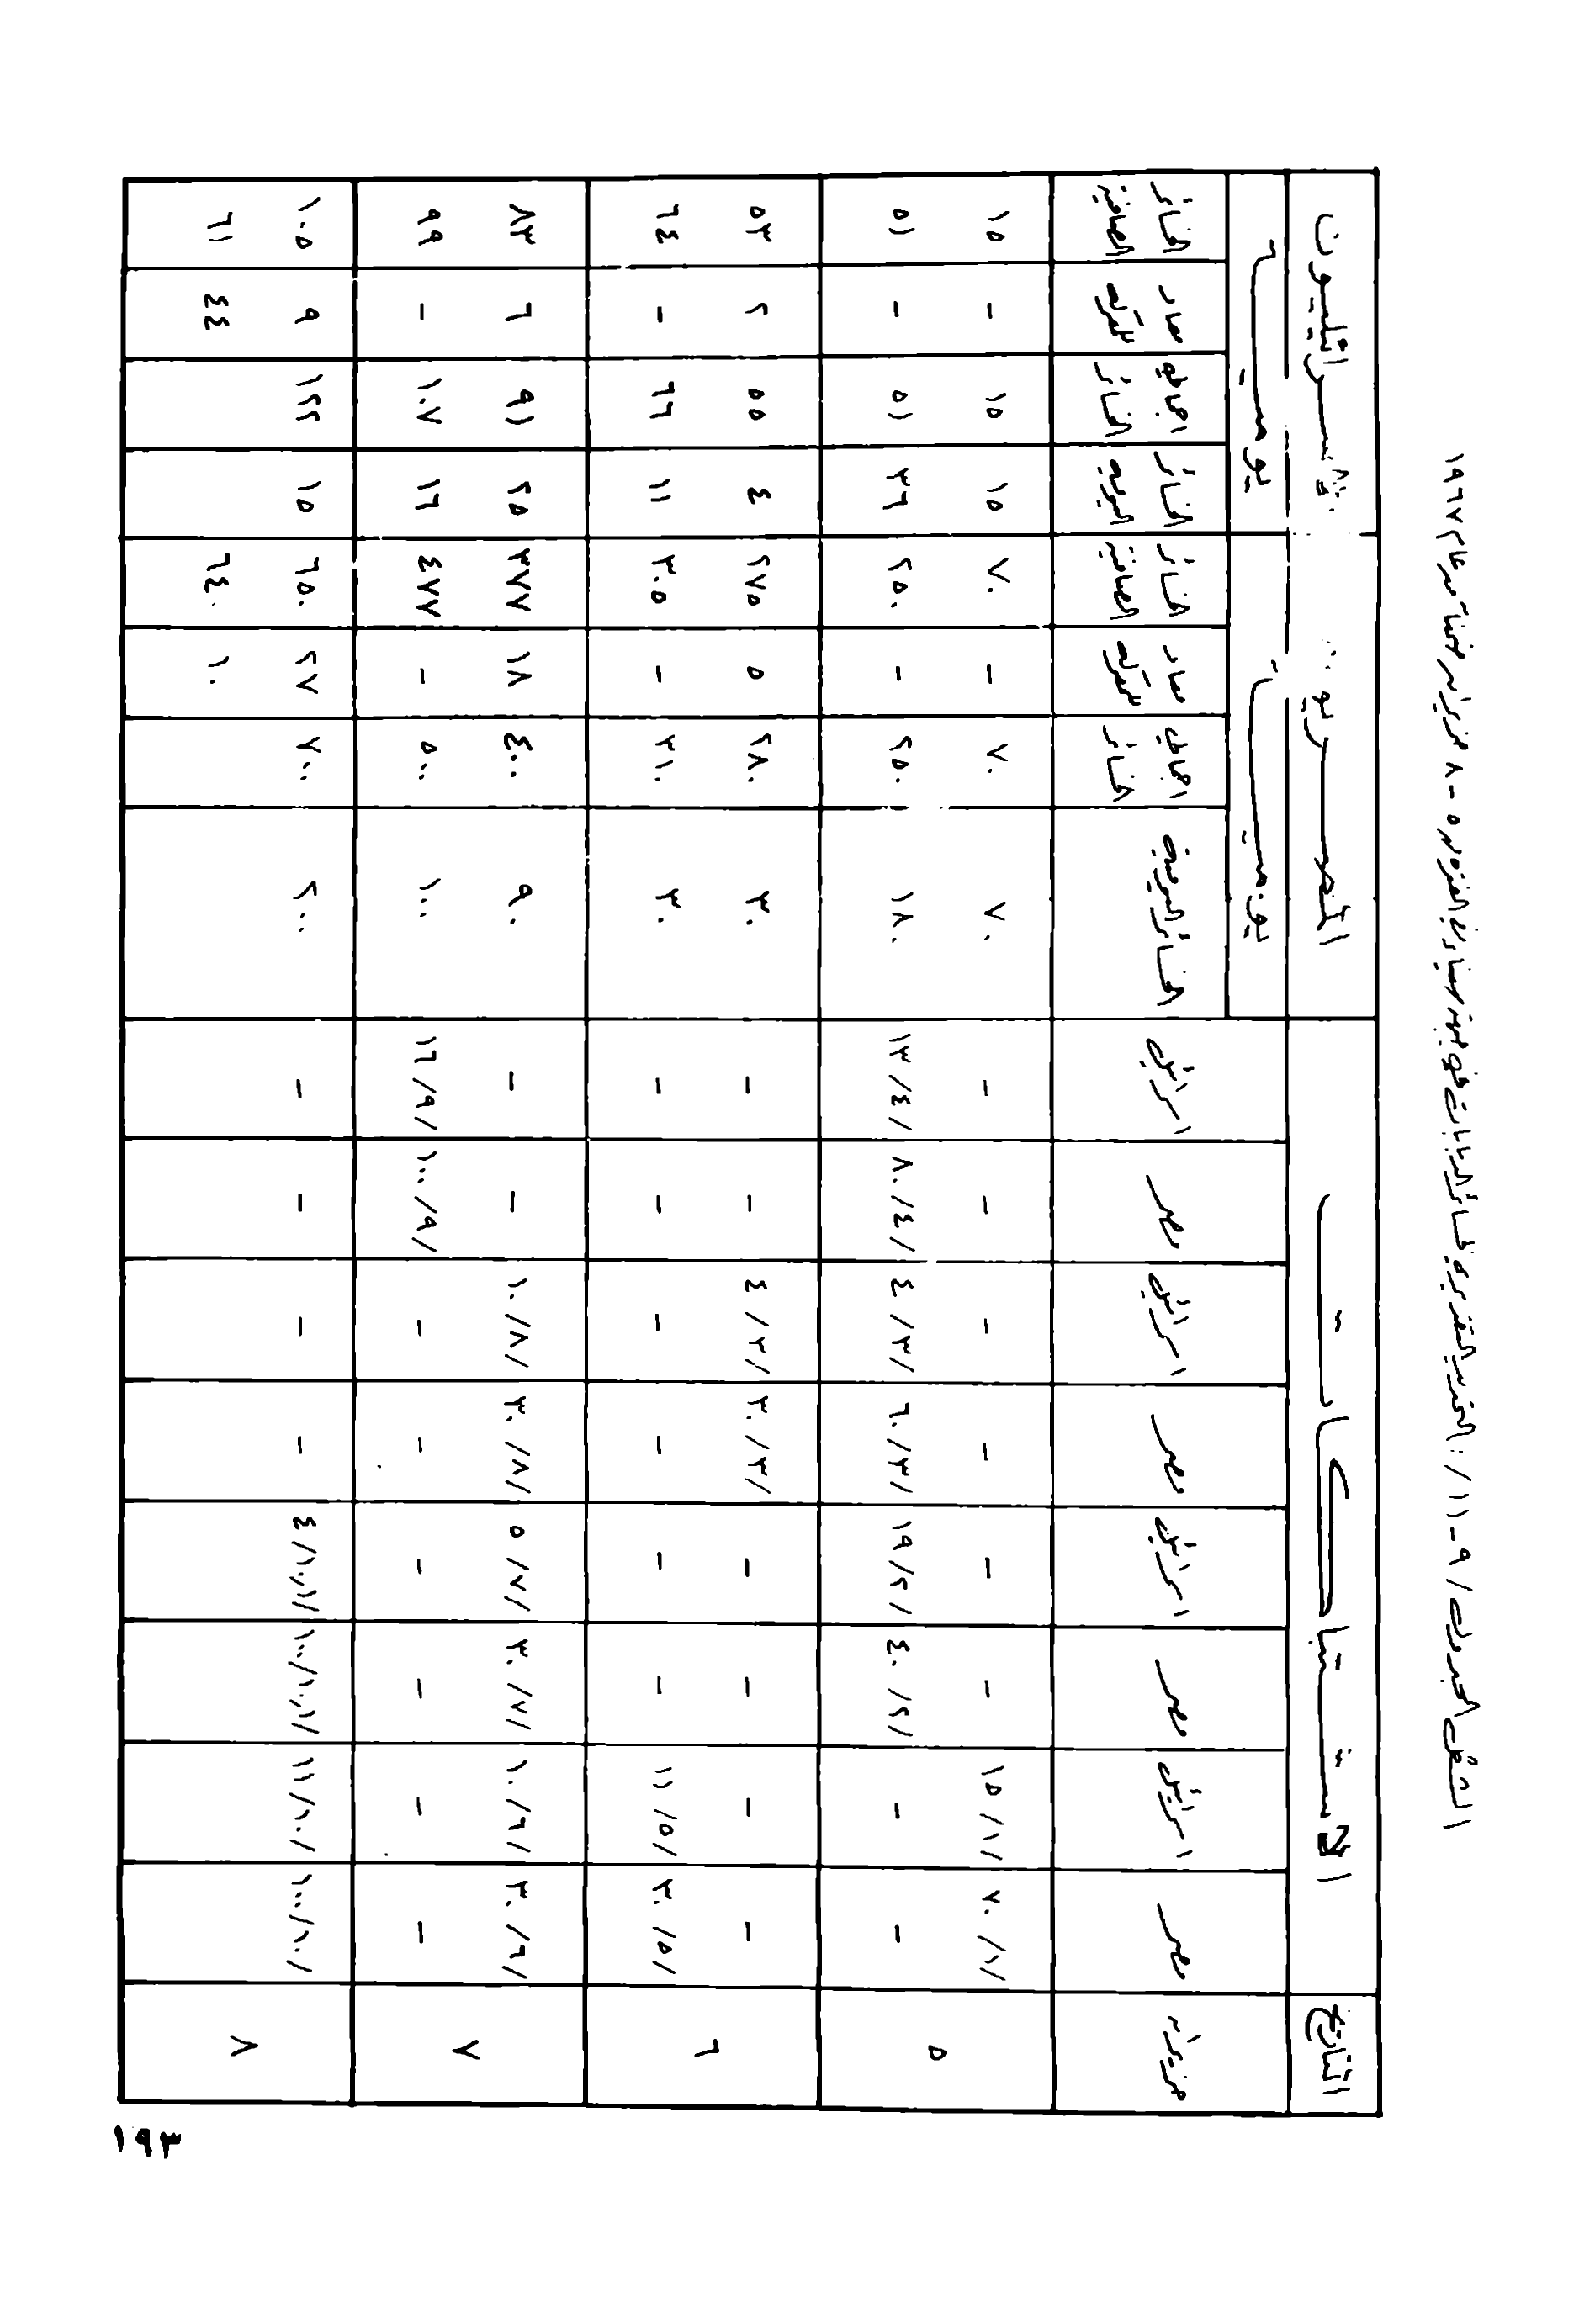 الشكل الجدولي /٩ - ١١/ : التحديد التقديري لخسائر الدبابات في جبهة سيناء في الفترة من ٥ - ٨ حزيران ضمناً من عام ١٩٦٧
التاريخ الاشتباكات المصريون الاسرائيليون
يومياً يومياً
حزيران مصر اسرائيل مصر اسرائيل مصر اسرائيل مصر اسرائيل الخسائر اليومية اجمالي الخسائر معاد للمعركة الخسائر الصافية الخسائر اليومية اجمالي الخسائر معاد للمعركة الخسائر الصافية
٥ ٧٠/١/ ١٥/١/ - - - - - - ٧٠ ٧٠ - ٧٠ ١٥ ١٥ - ١٥
- - ٤٠/٢/ ١٩/٢/ ٦٠/٣/ ٤/٣/ ٨٠/٤/ ١٣/٤/ ١٨٠ ٢٥٠ - ٢٥٠ ٣٦ ٥١ - ٥١
٦ - - - - ٣٠/٣/ ٤/٣/ - - ٣٠ ٢٨٠ ٥ ٢٧٥ ٤ ٥٥ ٢ ٥٣
٣٠/٥/ ١١/٥/ - - - - - - ٣٠ ٣١٠ - ٣٠٥ ١١ ٦٦ - ٦٤
٧ ٣٠/٦/ ١٠/٦/ ٣٠/٧/ ٥/٧/ ٣٠/٨/ ١٠/٨/ - - ٩٠ ٤٠٠ ١٨ ٣٧٧ ٢٥ ٩١ ٦ ٨٣
- - - - - - ١٠٠/٩/ ١٦/٩/ ١٠٠ ٥٠٠ - ٤٧٧ ١٦ ١٠٧ - ٩٩
٨ ١٠٠/١٠/ ١١/١٠/ ١٠٠/١٠،١/ ٤/١٠،١/ - - - - ٢٠٠ ٧٠٠ ٢٧ ٦٥٠ ١٥ ١٢٢ ٩ ١٠٥
١٠ ٦٤٠ ٤٤ ٦١
١٩٣